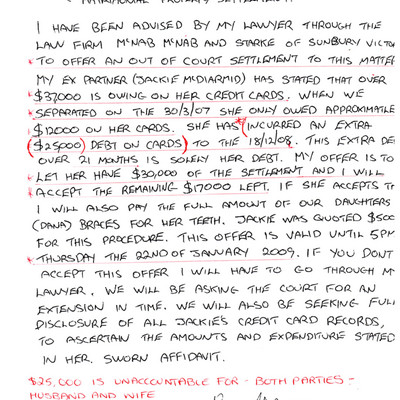 MATRIMONIAL PROPERTY SETTLEMENT
I HAVE BEEN ADVISED BY MY LAWYER THROUGH THE
LAW FIRM McNAB McNAB AND STARKE OF SUNBURY VICTO
* TO OFFER AN OUT OF COURT SETTLEMENT TO THIS MATTER
MY EX PARTNER (JACKIE McDIARMID) HAS STATED THAT OVER
* $37000 IS OWING ON HER CREDIT CARDS. WHEN WE
* SEPARATED ON THE 30/3/07 SHE ONLY OWED APPROXIMATELE
* $12000 ON HER CARDS. SHE HAS *(INCURRED AN EXTRA
($25000) DEBT ON CARDS) TO THE 18/12/08. THIS EXTRA DE
OVER 21 MONTHS IS SOLELY HER DEBT. MY OFFER IS TO
* LET HER HAVE $30,000 OF THE SETLEMENT AND I WILL
* ACCEPT THE REMAINING $17000 LEFT. IF SHE ACCEPTS TH
I WILL ALSO PAY THE FULL AMOUNT OF OUR DAUGHTERS
(DANA) BRACES FOR HER TEETH. JACKIE WAS QUOTED $500
FOR THIS PROCEDURE. THIS OFFER IS VALID UNTIL 5PM
* THURSDAY THE 22ND OF JANUARY 2009. IF YOU DONT
ACCEPT THIS OFFER I WILL HAVE TO GO THROUGH M
LAWYER. WE WILL BE ASKING THE COURT FOR AN
EXTENSION IN TIME. WE WILL ALSO BE SEEKING FULL
DISCLOSURE OF ALL JACKIES CREDIT CARD RECORDS,
TO ASCERTAIN THE AMOUNTS AND EXPENDITURE STATED
IN HER SWORN AFFIDAVIT.
$25,000 IS UNACCOUNTABLE FOR - BOTH PARTIES -
HUSBAND AND WIFE